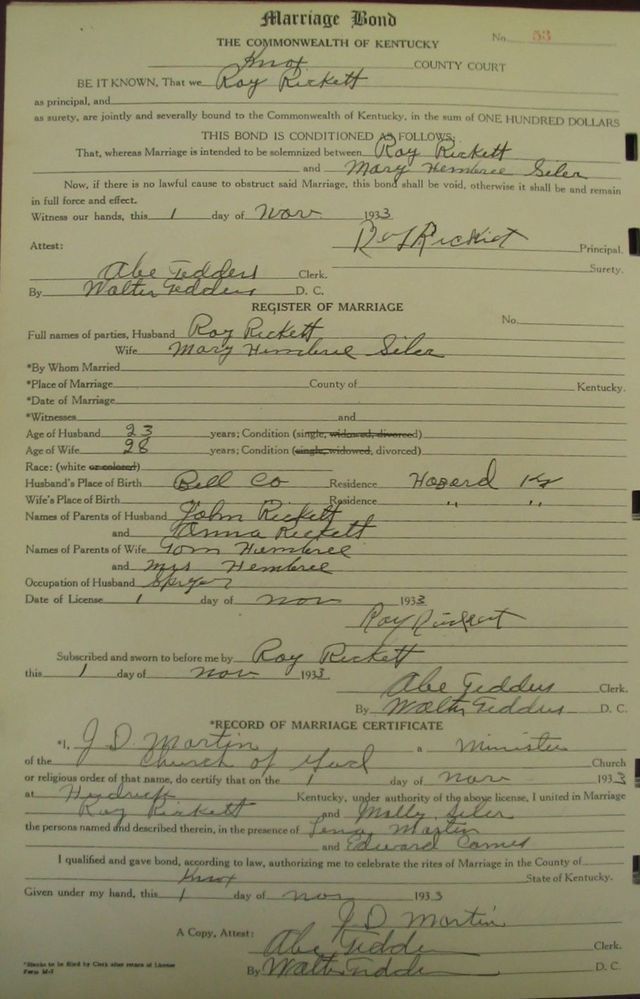 Marriage Bond
No. 53
THE COMMONWEALTH OF KENTUCKY
Knox COUNTY COURT
BE IT KNOWN, That we Roy Rickett
as principal, and
as surety, are jointly and severally bound to the Commonwealth of Kentucky, in the sum of ONE HUNDRED DOLLARS
THIS BOND IS CONDITIONED AS FOLLOWS:
That, whereas Marriage is intended to be solemnized between Roy Rickett
and Mary Hembree Siler
Now, if there is no lawful cause to obstruct said Marriage, this bond shall be void, otherwise it shall be and remain
in full force and effect.
Witness our hands, this 1 day of Nov 1933
Roy Rickett Principal.
Attest:
Surety.
Abe Tedders Clerk.
By Walter Tedders D. C.
REGISTER OF MARRIAGE
No.
Full names of parties, Husband Roy Rickett
Wife Mary Hembree Siler
*By Whom Married
*Place of Marriage County of Kentucky.
*Date of Marriage
*Witnesses and
Age of Husband 23 years; Condition (single, widowed, divorced)
Age of Wife 28 years; Condition (single, widowed, divorced)
Race: (white or colored)
Husband's Place of Birth Bell Co Residence Hazard Ky
Wife's Place of Birth Residence " "
Names of Parents of Husband John Rickett
and Anna Rickett
Names of Parents of Wife Tom Hembree
and Mrs Hembree
Occupation of Husband
Date of License 1 day of Nov 1933
Roy Rickett
Subscribed and sworn to before me by Roy Rickett
this 1 day of Nov 1933
Abe Tedders Clerk.
By Walter Tedders D. C.
*RECORD OF MARRIAGE CERTIFICATE
*I, J D Martin a Minister
of the Church of God Church
or religious order of that name, do certify that on the 1 day of Nov 1933
at Kentucky, under authority of the above license, I united in Marriage
Roy Rickett and Molly Siler
the persons named and described therein, in the presence of Lena Martin
and Edward
I qualified and gave bond, according to law, authorizing me to celebrate the rites of Marriage in the County of
Knox State of Kentucky.
Given under my hand, this 1 day of Nov 1933
J D Martin
A Copy, Attest: Abe Tedders Clerk.
By Walter Tedders D. C.
*Blanks to be filled by Clerk after return of License
Form M-7